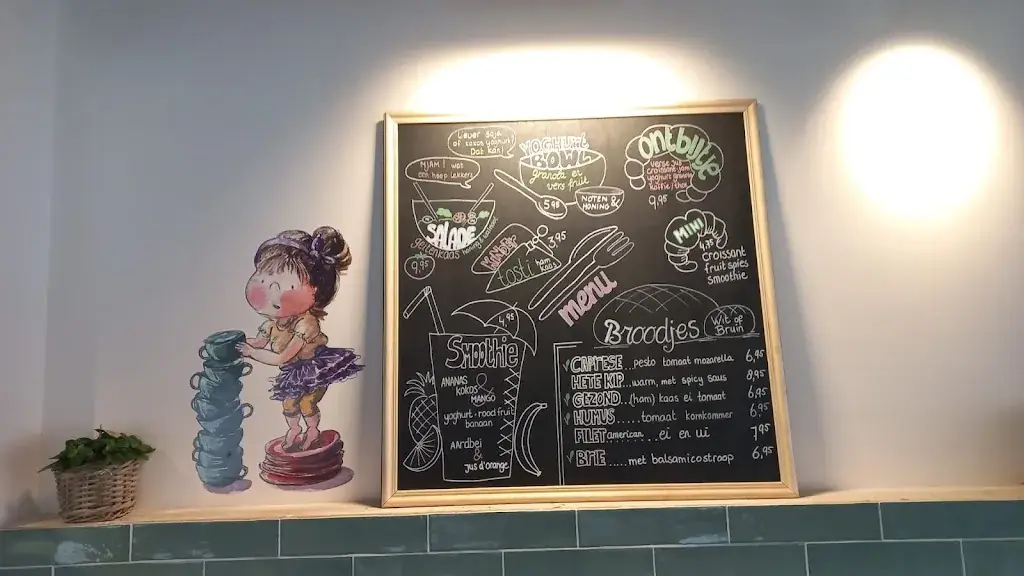 Liever soja
of kokos yoghurt?
Dat kan!
MJAM! wat
een hoop lekkers
YOGHURT
BOWL
granola en
vers fruit
5,95
NOTEN &
HONING
Ontbijtje
verse jus
croissant jam
yoghurt granola
koffie/thee
9,95
SALADE
geitenkaas honing
9,95
Kinder
tosti ham
kaas
3,95
menu
MINI
4,75
croissant
fruit spies
smoothie
4,95
Smoothie
ANANAS
KOKOS &
MANGO
yoghurt - rood fruit
banaan
Aardbei
&
jus d'orange
Broodjes
Wit of
Bruin
CAPRESE...pesto tomaat mozarella 6,95
HETE KIP...warm, met spicy saus 8,95
GEZOND...(ham) kaas ei tomaat 6,95
HUMUS......tomaat komkommer 6,95
FILET american....ei en ui 7,95
BRIE.....met balsamicostroop 6,95